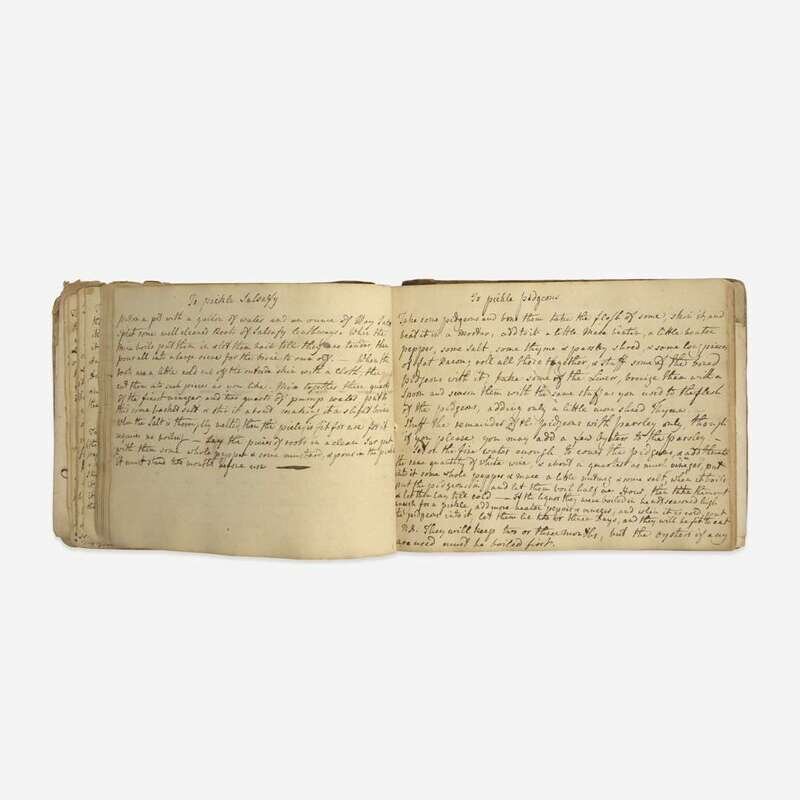 To pickle Salsefy
put on a pot with a gallon of water and an ounce of Bay Salt
split some well cleaned Roots of Salsefy lengthways. When the
brine boils put them in & let them boil till they are tender, then
pour all into a large sieve for the brine to run off. — When the
roots are a little cold rub off the outside skin with a cloth, then
cut them into such pieces as you like. Mix together three quarts
of the finest vinegar and two quarts of pump water put to
this some basket salt & stir it about making it a strong brine
When the Salt is thoroughly melted then the pickle is fit for use for it
requires no boiling — Lay the pieces of roots in a clean Jar, put
with them some whole pepper & some mustard, & pour on the pickle
it must stand two months before use
To pickle pidgeons
Take some pidgeons and bone them take the flesh of some, skin it, and
beat it in a mortar, add to it a little Mace beaten, a little beaten
pepper, some salt, some thyme & parsley shred & some long pieces
of fat Bacon; roll all these together, & stuff some of the boned
pidgeons with it; take some of the Liver, bruise them with a
spoon and season them with the same stuff as you used to the flesh
of the pidgeons, adding only a little more shred Thyme.
Stuff the remainder of the pidgeons with parsley only though
if you please you may add a few Oysters to the parsley —
Set on the fire water enough to cover the pidgeons, add to it
the same quantity of white wine, & about a quarter as much vinegar, put
into it some whole pepper & mace a little nutmeg & some salt, when it boils
put the pidgeons in, and let them boil half an Hour, then take them out
& let them lay till cold — if the liquor they were boiled in be not seasoned high
enough for a pickle, add more beaten pepper & vinegar, and when it is cold, put
the pidgeons into it, let them lie two or three Days, and they will be fit to eat
N.B. They will keep two or three months, but the oysters if any
are used must be boiled first.